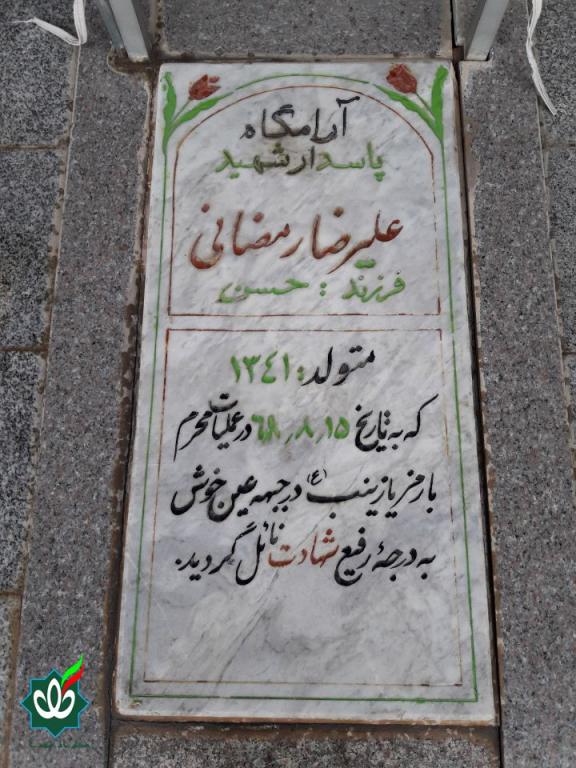 آرامگاه
پاسدار شهید
علیرضا رمضانی
فرزند : حسن
متولد : ۱۳۴۱
که به تاریخ ۶۸٫۸٫۱۵ در عملیات محرم
با رمز یا زینب (ع) در جبهه عین خوش
به درجهٔ رفیع شهادت نائل گردید.